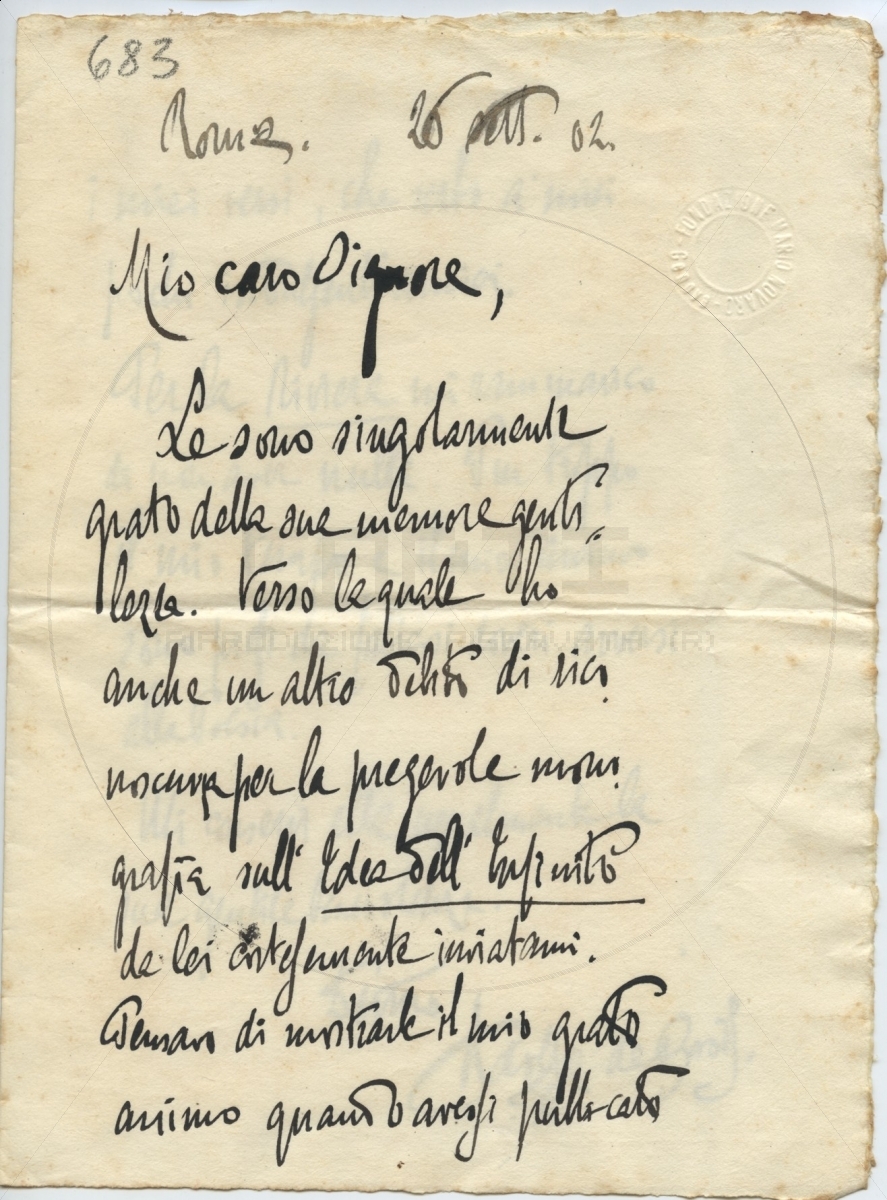 683
Roma. 26 sett. 02.
Mio caro Signore,
Le sono singolarmente
grato della sua memore genti=
lezza. Verso la quale ho
anche un altro debito di rico.
noscenza per la pregevole mono.
grafia sull' Idea dell' Infinito
da lei cortesemente inviatami.
Pensavo di mostrarle il mio grato
animo quando avessi pubblicato
FONDAZIONE MARIO NOVARO
RIPRODUZIONE RISERVATA (R)